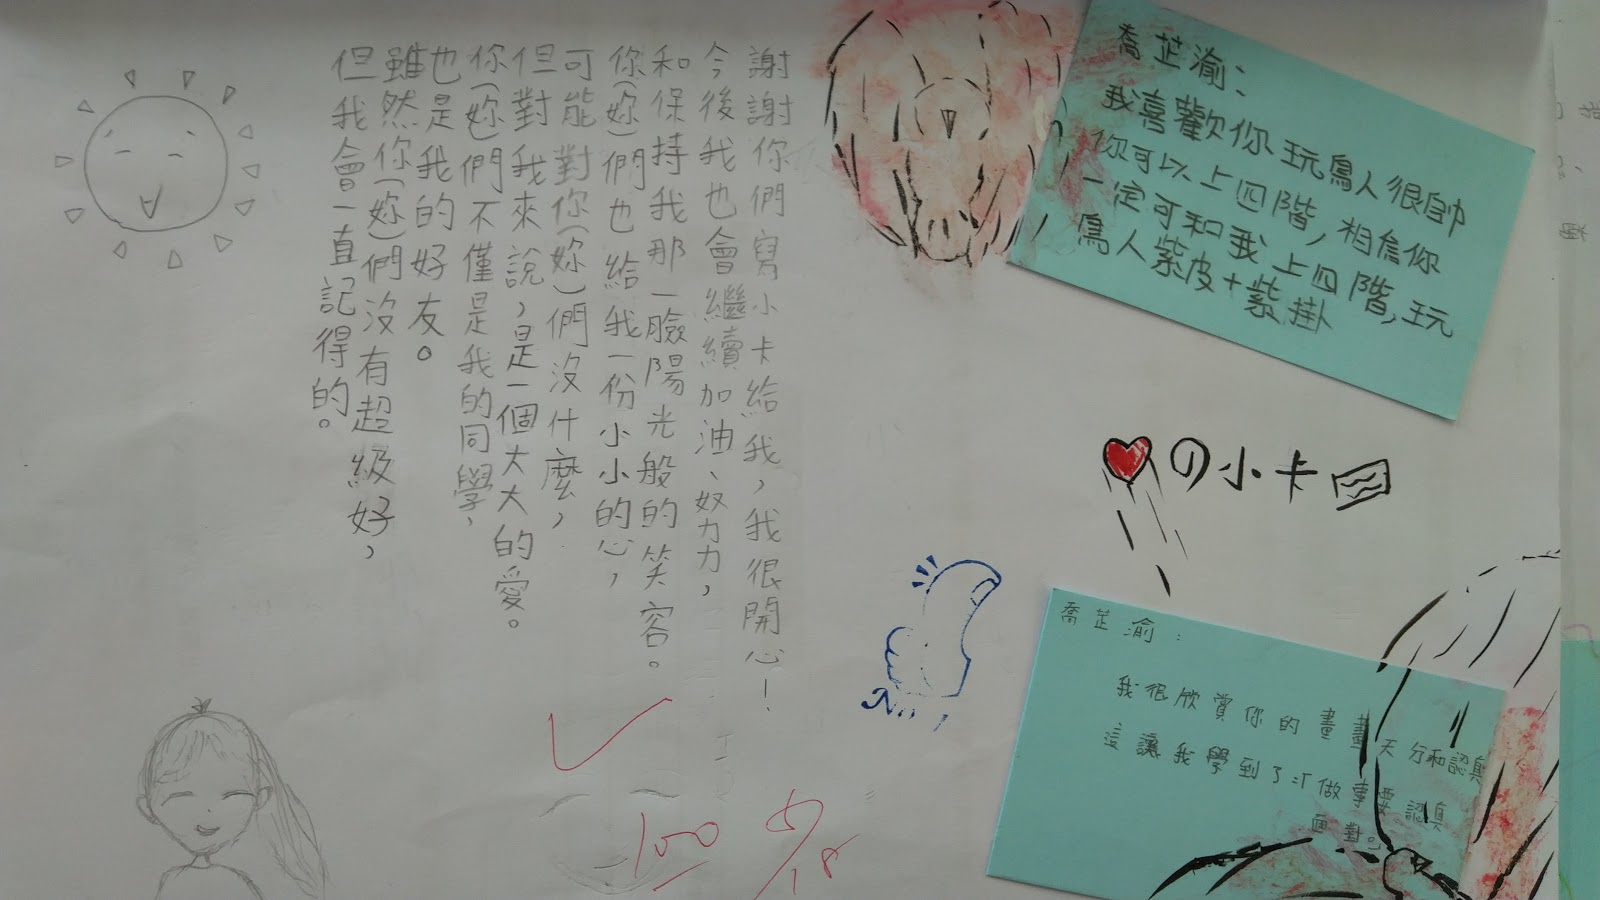 謝謝你們寫小卡給我，我很開心！
今後我也會繼續加油、努力，
和保持我那一臉陽光般的笑容。
你(妳)們也給我一份小小的心，
可能對你(妳)們沒什麼，
但對我來說，是一個大大的愛。
你(妳)們不僅是我的同學，
也是我的好友。
雖然你(妳)們沒有超級好，
但我會一直記得的。
喬芷渝：
我喜歡你玩鳥人很帥
你可以上四階，相信你
一定可和我上四階，玩
鳥人紫皮+紫掛
の小卡
喬芷渝：
我很欣賞你的畫畫天分和認真
這讓我學到了
做事要認真
面對。
100